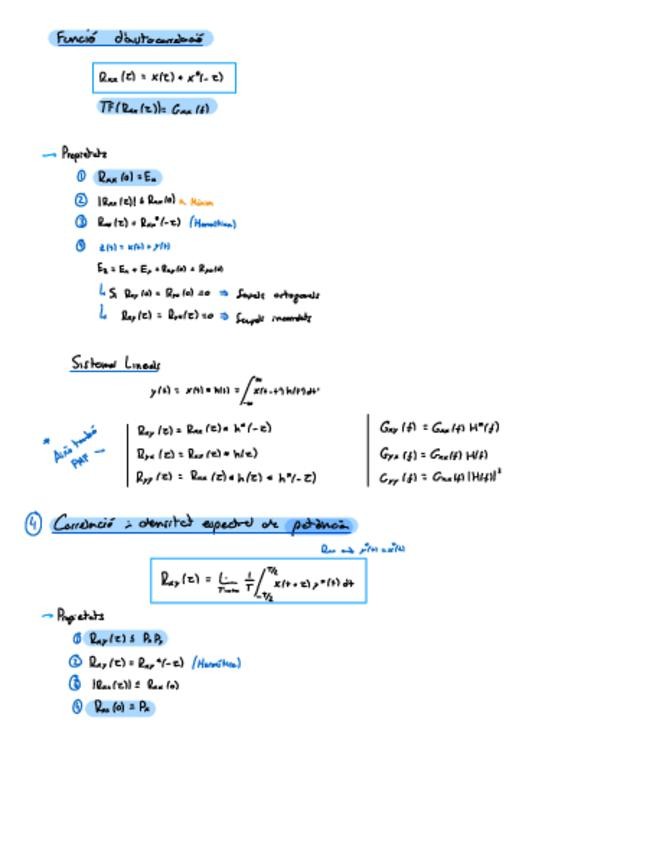 Funció d'autocorrelació
Rxx(τ) = x(τ) * x*(-τ)
TF{Rxx(τ)} = Gxx(f)
→ Propietats
① Rxx(0) = Ex
② |Rxx(τ)| ≤ Rxx(0)
③ Rxx(τ) = Rxx*(-τ) (Hermítica)
④ z(t) = x(t) + y(t)
Ez = Ex + Ey + Rxy(0) + Ryx(0)
↳ Si Rxy(0) = Ryx(0) = 0 ⇒ Senyals ortogonals
↳ Rxy(τ) = Ryx(τ) = 0 ⇒ Senyals incorrelats
Sistemes Lineals
y(t) = x(t) * h(t) = ∫
Rxy(τ) = Rxx(τ) * h*(-τ)
Ryx(τ) = Rxx(τ) * h(τ)
Ryy(τ) = Rxx(τ) * h(τ) * h*(-τ)
Gxy(f) = Gxx(f) H*(f)
Gyx(f) = Gxx(f) H(f)
Gyy(f) = Gxx(f) |H(f)|²
* Això també
④ Correlació i densitat espectral de potència
Rxx → y*(t) = x*(t)
Rxy(τ) = lim T→∞ 1/T ∫ -T/2 T/2 x(t+τ) y*(t) dt
→ Propietats
① Rxy(τ) ≤ Px Py
② Rxy(τ) = Rxy*(-τ) (Hermítica)
③ |Rxx(τ)| ≤ Rxx(0)
④ Rxx(0) = Px